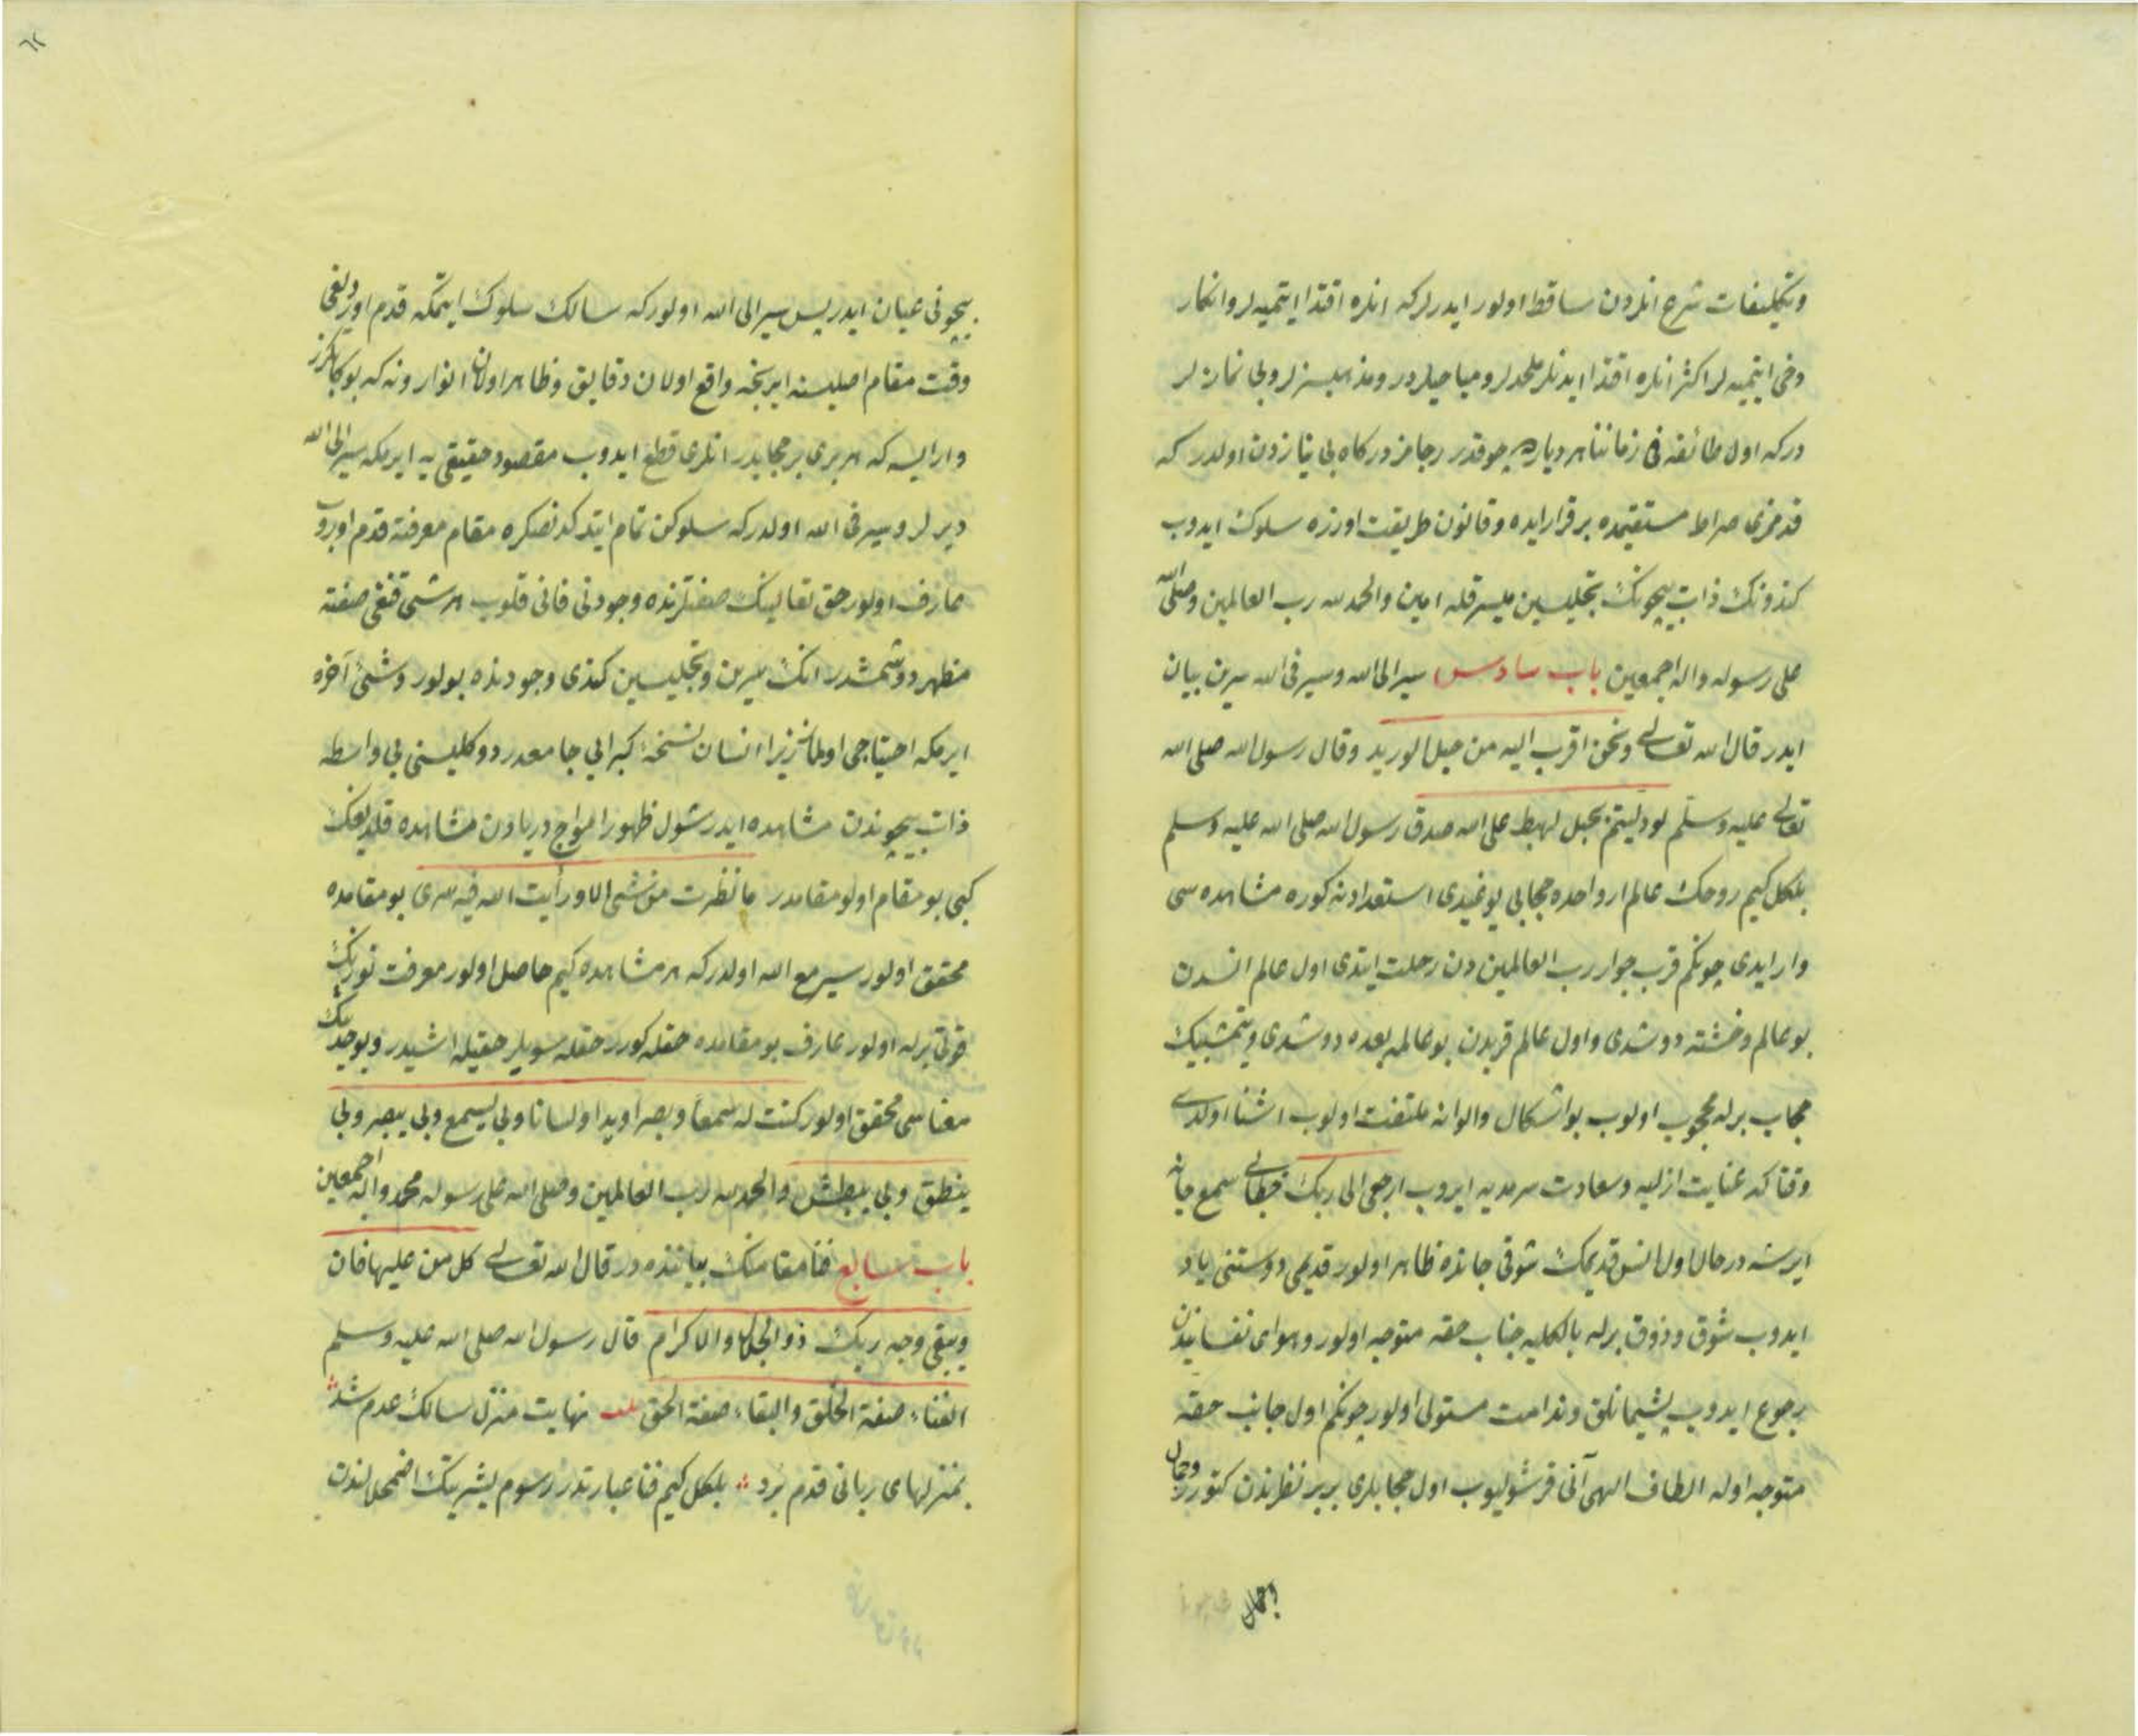 وتکلیفات شرع انلردن ساقط اولور ایدرلرکه انلره اقتدا ایتمیه لر وانکار
دخی ایتمیه لر اکثر انلره اقتدا ایدنلر ملحدلر ومباحیلردر ومذهبسزلر وبی نمازلر
درکه اول طائفه فی زماننا هر دیارده چوقدر رجامز درکاه بی نیازدن اولدرکه
قدمزی صراط مستقیمده برقرار ایده وقانون طریقت اوزره سلوک ایدوب
کندونک ذات بیچونک تجلیسین میسر قله امین والحمد لله رب العالمین وصلی الله
علی رسوله واله اجمعین باب سادس سیر الی الله وسیر فی الله سیرین بیان
ایدر قال الله تعالی ونحن اقرب الیه من حبل الورید وقال رسول الله صلی الله
تعالی علیه وسلم لو دلیتم بحبل لهبط علی الله صدق رسول الله صلی الله علیه وسلم
بلکل کیم روحک عالم ارواحده حجابی یوغیدی استعدادنه کوره مشاهده سی
وار ایدی چونکم قرب جوار رب العالمین دن رحلت ایتدی اول عالم انسدن
بو عالم وحشته دوشدی واول عالم قربدن بو عالم بعده دوشدی
حجاب برله محجوب اولوب بو اشکال والوانه ملتفت اولوب اشنا اولدی
وقتاکه عنایت ازلیه وسعادت سرمدیه ایروب ارجعی الی ربک خطابی سمع جانه
ایرشه درحال اول انس قدیمک شوقی جانده ظاهر اولور قدیمی دوستنی یاد
ایدوب شوق وذوق برله بالکلیه جناب حقه متوجه اولور وهوای نفسانیدن
رجوع ایدوب پشیمانلق وندامت مستولی اولور چونکم اول جانب حقه
متوجه اوله الطاف الهی آنی قرشولیوب اول حجابلری بربر نظرندن کتورر وجمال
وجمال
بیچونی عیان ایدر پس سیر الی الله اولورکه سالک سلوک ایتمکه قدم اوردلغی
وقت مقام اصلیسنه ایرنجه واقع اولان دقایق وظاهر اولان انوار ونه که بو کا بکزر
وار ایسه که هر بری بر حجابدر انلری قطع ایدوب مقصود حقیقی یه ایرمکه سیر الی الله
دیرلر وسیر فی الله اولدرکه سلوکن تمام ایتدکدنصکره مقام معرفته قدم اوروب
عارف اولور حق تعالینک صفتلرنده وجودنی فانی قلوب هر شی قنغی صفته
مظهر دوشمشدر انک سیرین وتجلیسین کندی وجودنده بولور وشئ آخره
ایرمکه احتیاجی اولماز زیرا انسان نسخهٔ کبرای جامعدر دوکلیسنی بی واسطه
ذات بیچوندن مشاهده ایدر شول ظهور امواج دریادن مشاهده قلدیغک
کبی بو مقام اولو مقامدر ما نظرت من شئ الا ورأیت الله فیه سری بو مقامده
محقق اولور سیر مع الله اولدرکه هر مشاهده کیم حاصل اولور معرفت نورینک
قوتی برله اولور عارف بو مقامده حقله کورر حقله سویلر حقیله اشیدر وبو حدیثک
معناسی محقق اولور کنت له سمعا وبصرا ویدا ولسانا وبی یسمع وبی یبصر وبی
ینطق وبی یبطش والحمد لله رب العالمین وصلی الله علی رسوله محمد واله اجمعین
باب سابع فنا مقامنک بیاننده در قال الله تعالی کل من علیها فان
ویبقی وجه ربک ذو الجلال والاکرام قال رسول الله صلی الله علیه وسلم
الفناء صفة الخلق والبقاء صفة الحق نهایت منزل سالک عدم شد
بمنزلهای ربانی قدم زد بلکل کیم فنا عبارتدر رسوم بشریتک اضمحلالندن